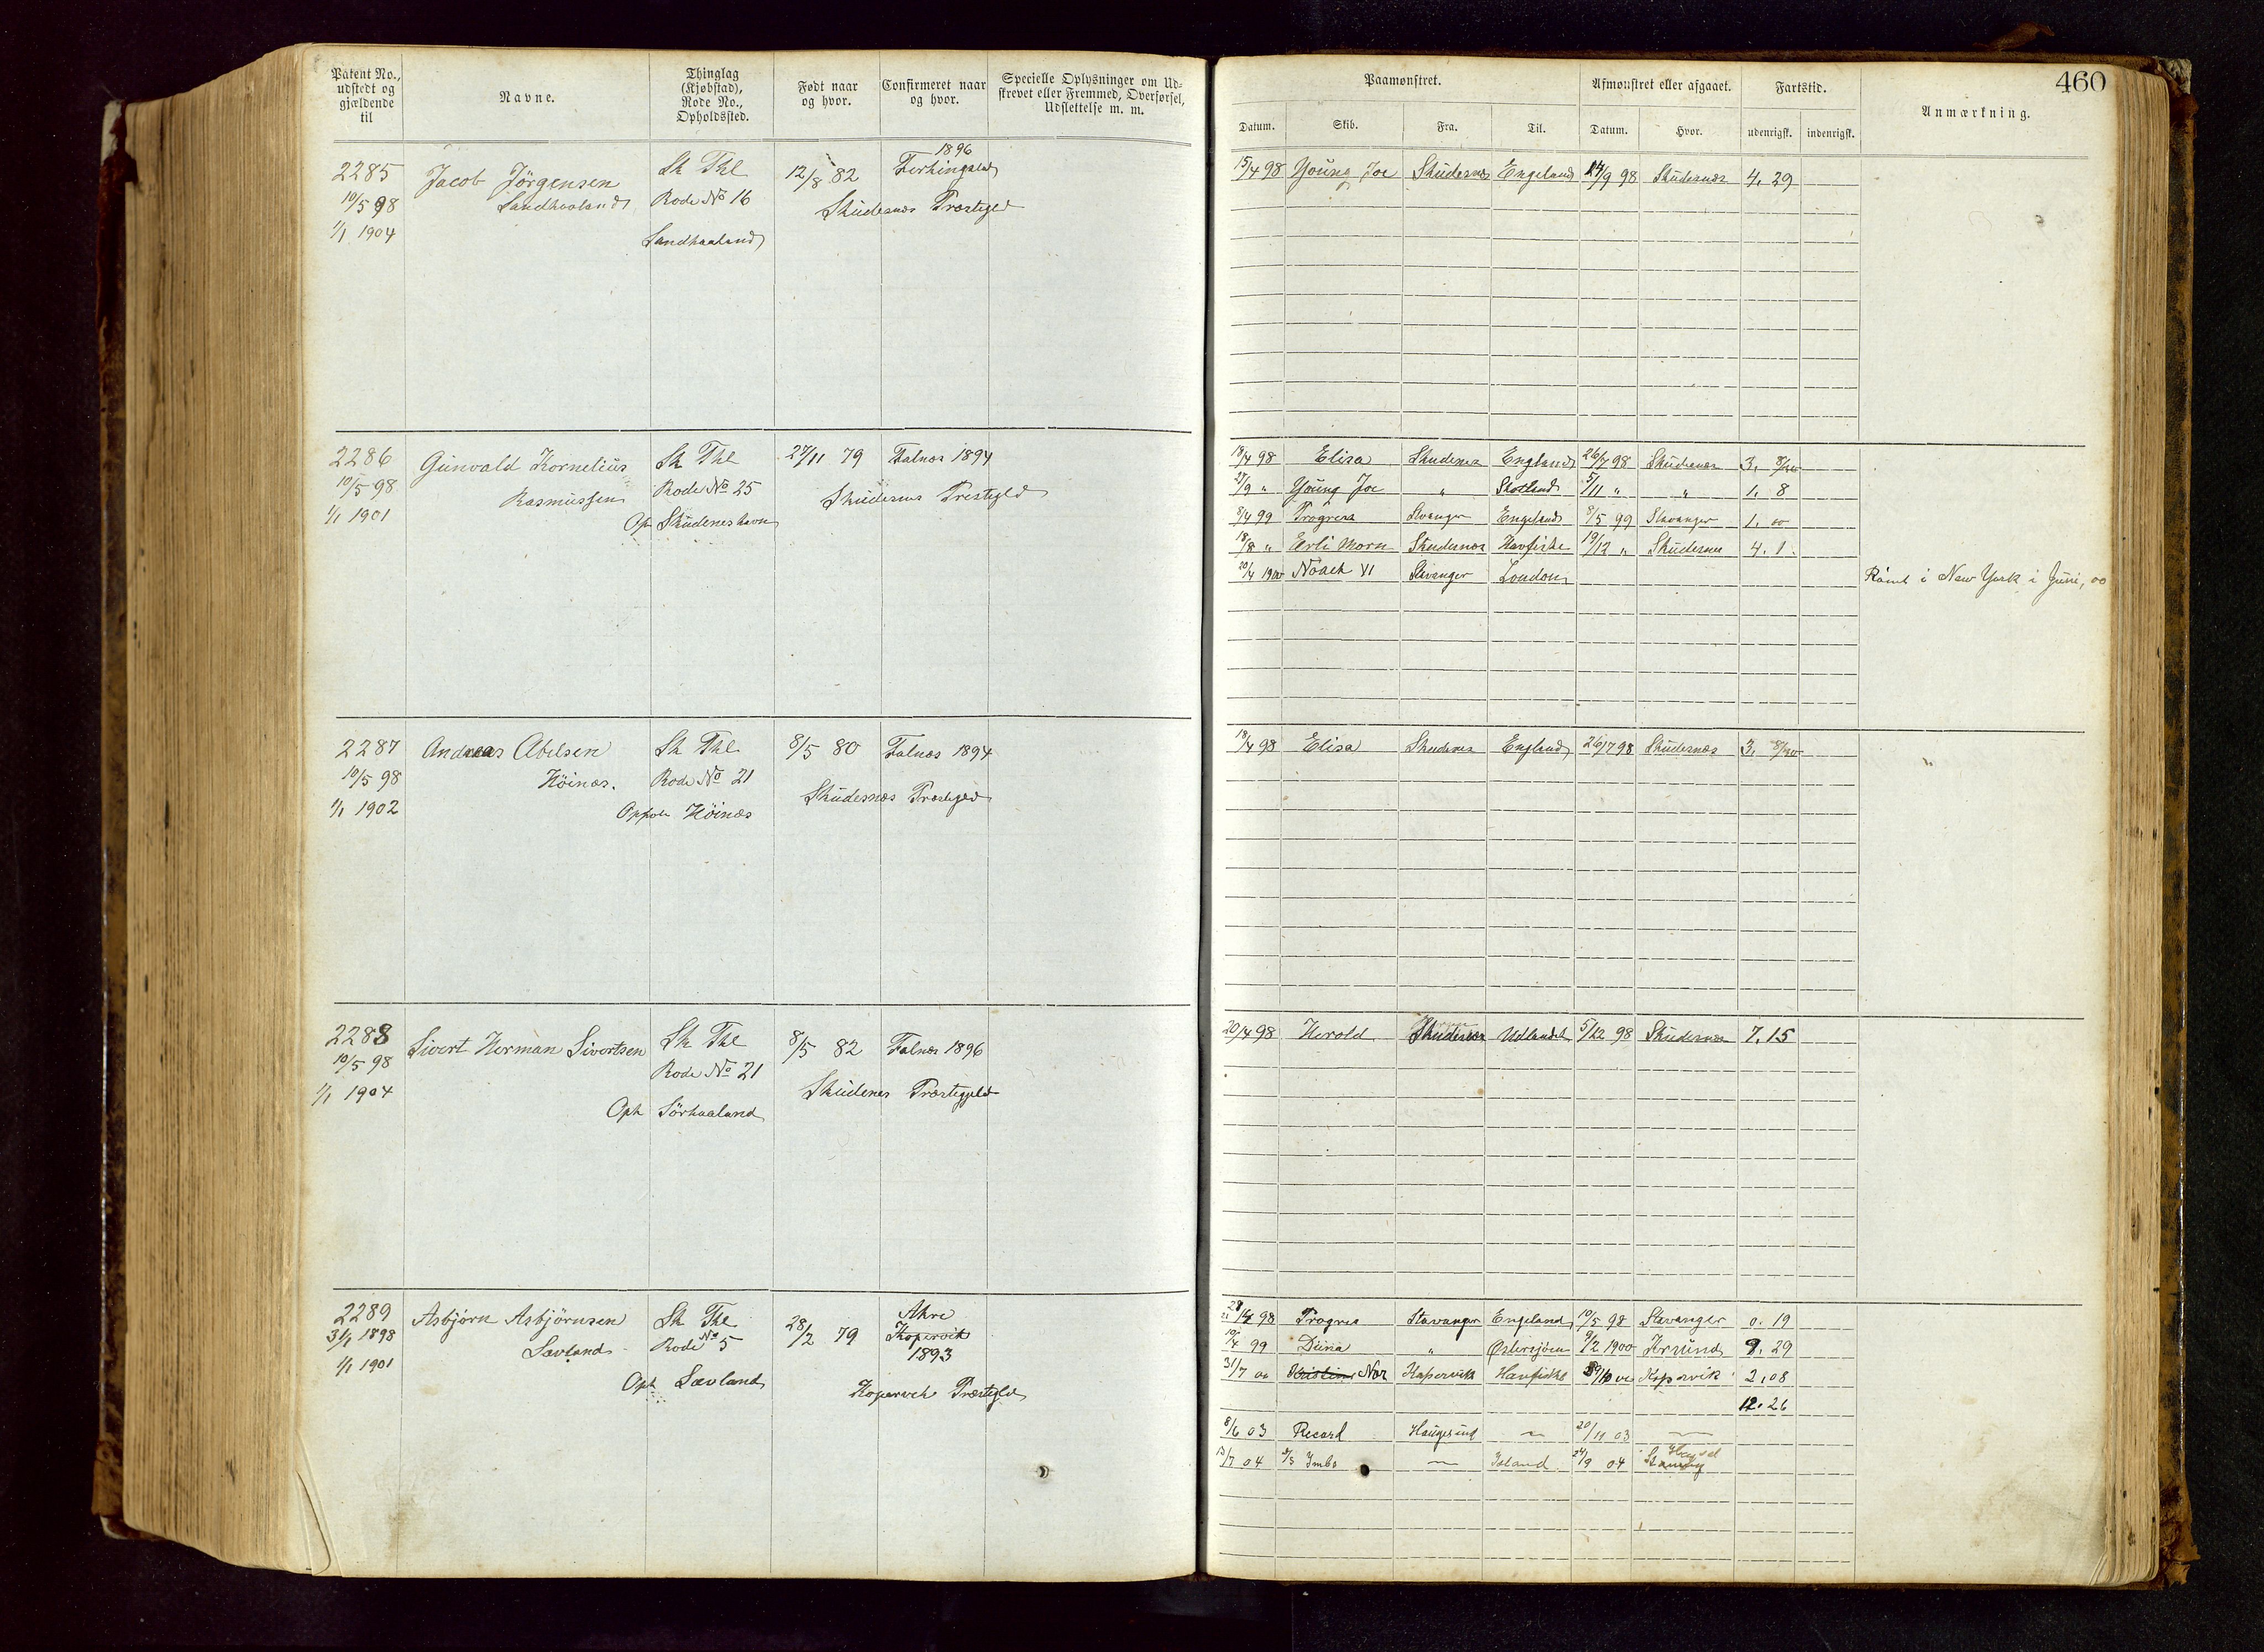 Patent No., udstedt og gjældende til
Navne.
Thinglag (Kjøbstad), Rode No., Opholdssted.
Født naar og hvor.
Confirmeret naar og hvor.
Specielle Oplysninger om Udskrevet eller Fremmed, Overførsel, Udslettelse m. m.
Paamønstret.
Afmønstret eller afgaaet.
Fartstid.
Anmærkning.
460
Datum. Skib. Fra. Til. Datum. Hvor. udenrigsk. indenrigsk.
2285 Jacob Jörgensen Sk Thl 12/8 82 1896
10/5 98 Sandhaaland Rode No 16 Skudesnæs Præstegld
1/1 1904 Sandhaaland
15/4 98 Young Joe Skudesnæs Engeland 14/9 98 Skudesnæs 4. 29
2286 Gunvald Kornelius Sk Thl 27/11 79 Falnæs 1894
10/5 98 Rasmussen Rode No 25 Skudesnæs Prestegld
1/1 1901 Oph Skudeneshavn
18/4 98 Elisa Skudenes England 26/7 98 Skudesnæs 3. 8
27/9 " Young Joe " Skotland 5/11 " " 1. 8
8/4 99 Progress Stvanger Engeland 8/5 99 Stavanger 1. 00
18/8 " Erli Morn Skudesnæs Havfiske 19/12 " Skudesnæs 4. 1
20/4 1900 Noach VI Stavanger London Rømt i New York i Juni, 00
2287 Andreas Abelsen Sk Thl 8/5 80 Falnæs 1894
10/5 98 Höinæs. Rode No 21 Skudesnæs Præstegld
1/1 1902 Höinæs
18/4 98 Elisa Skudenes England 26/7 98 Skudesnæs 3. 8
2288 Sivert Herman Sivertsen Sk Thl 8/5 82 Falnæs 1896
10/5 98 Rode No 21 Skudenes Præstegjeld
1/1 1904 Oph Sörhaaland
20/4 98 Herold Skudesnæs Udlandet 5/12 98 Skudesnæs 7. 15
2289 Asbjörn Asbjörnsen Sk Thl 28/2 79 Ahre
31/1 1898 Sævland Rode No 5 Kopervik 1893
1/1 1901 Oph Sævland Kopervik Præstegld
98 Progress Stavanger Engeland 10/5 98 Stavanger 0. 19
10/4 99 Duna " Østersjöen 9/2 1900 9. 29
31/7 00 Kristine Nor Kopervik Havfiske Kopervik 2. 08
12. 26
8/6 03 Record Haugesund — 20/11 03 —
13/7 04 — Island 24/9 04 Stavang